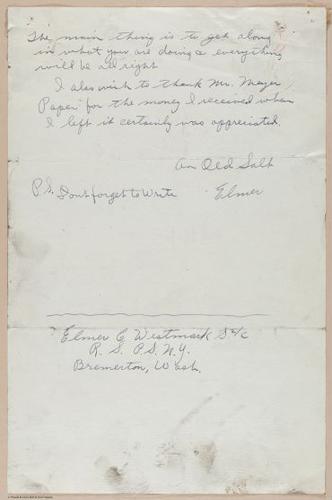 The main thing is to get along
in what you are doing & everything
will be all right
I also wish to thank Mr. Mayer
Paper for the money I received when
I left it certainly was appreciated.
An Old Salt
P.S. Dont forget to Write Elmer
Elmer C Westmark S2/c
R. S. P.S.N.Y.
Bremerton, Wash.